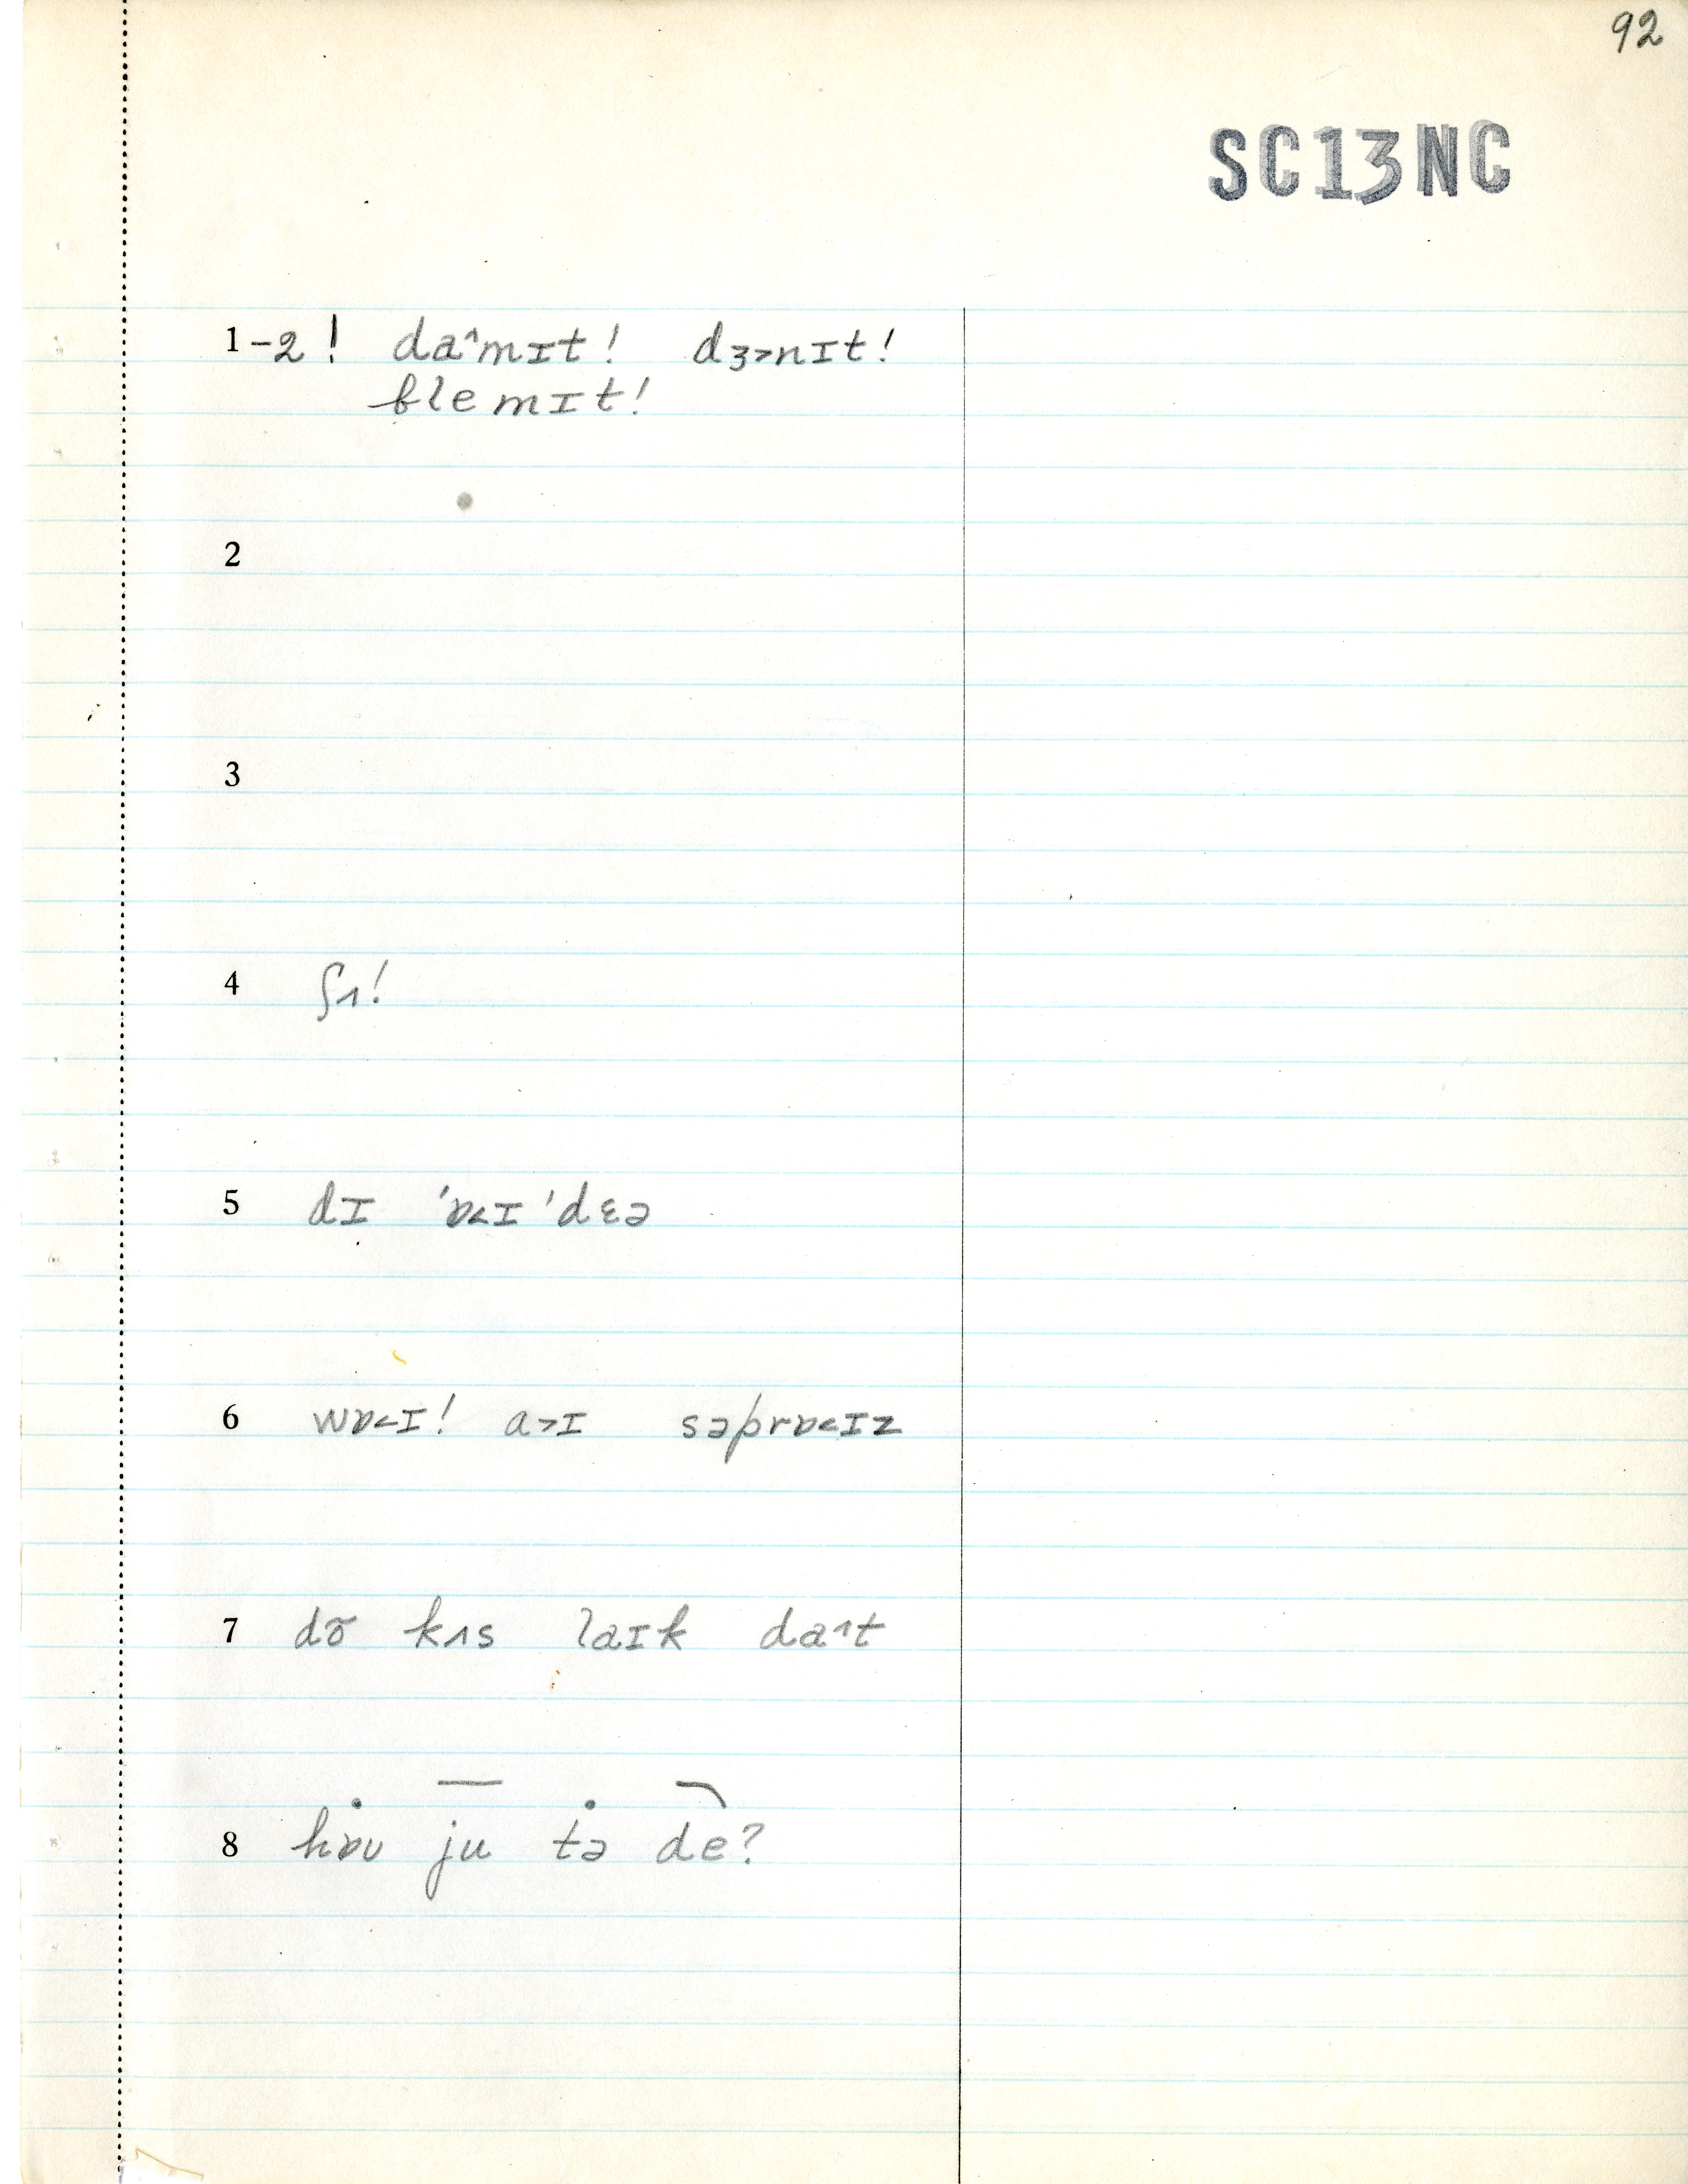 92
SC13NC
1-2! da^mɪt! dɜ>nɪt!
blemɪt!
2
3
4 ʃʌ!
5 dɪ 'ɒ<ɪ 'dɛə
6 wɒ<ɪ! a>ɪ səprɒ<ɪz
7 dõ kʌs laɪk da^t
8 hɒʊ ju tə de?